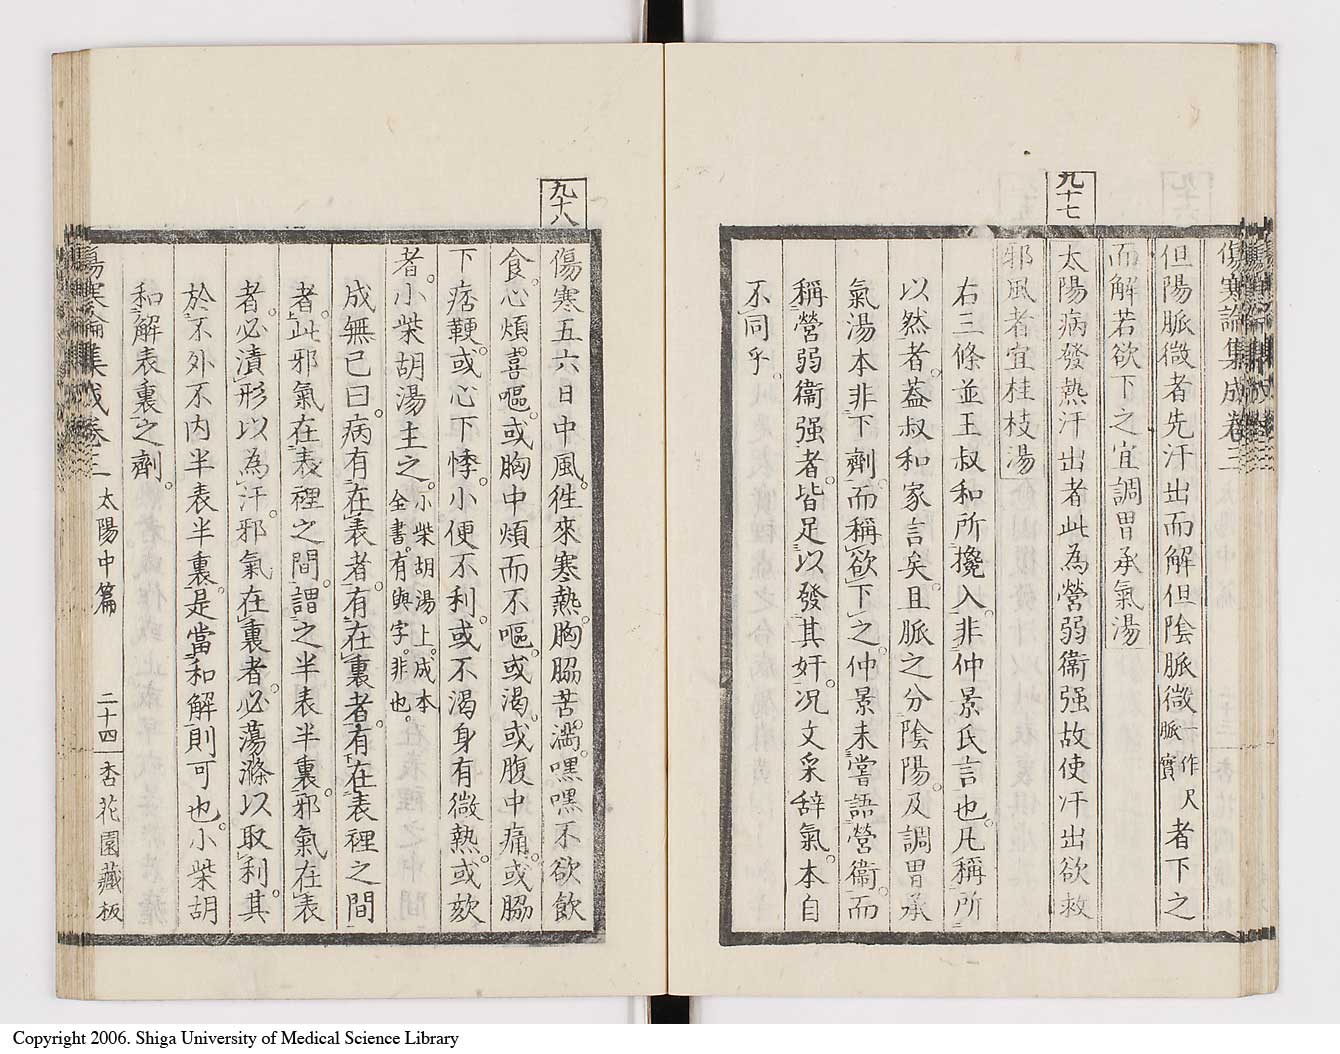 傷寒論集成卷三
但陽脈微者先汗出而解但陰脈微作尺脈實者下之
而解若欲下之宜調胃承氣湯
九十七
太陽病發熱汗出者此為營弱衞强故使汗出欲救
邪風者宜桂枝湯
右三條並王叔和所攙入。非仲景氏言也。凡稱所
以然者。葢叔和家言矣。且脈之分陰陽。及調胃承
氣湯本非下劑。而稱欲下之。仲景未嘗語營衞。而
稱營弱衞强者。皆足以發其奸。况文采辞氣。本自
不同乎。
九十八
傷寒五六日中風。徃來寒熱。胸脇苦滿。嘿嘿不欲飲
食。心煩。喜嘔。或胸中煩而不嘔。或渴。或腹中痛。或脇
下痞鞕。或心下悸。小便不利。或不渴身有微熱。或欬
者。小柴胡湯主之。小柴胡湯上。成本全書。有與字。非也。
成無已曰。病有在表者。有在裏者。有在表裡之間
者。此邪氣在表裡之間。謂之半表半裏。邪氣在表
者。必漬形以為汗。邪氣在裏者。必蕩滌以取利。其
於不外不内半表半裏。是當和解則可也。小柴胡
和解表裏之劑。
傷寒論集成卷三 太陽中篇 二十四 杏花園藏板
Copyright 2006. Shiga University of Medical Science Library